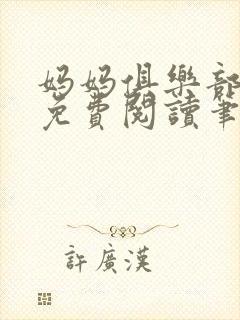 媽媽俱樂部
免費閱讀筆
許廣漢